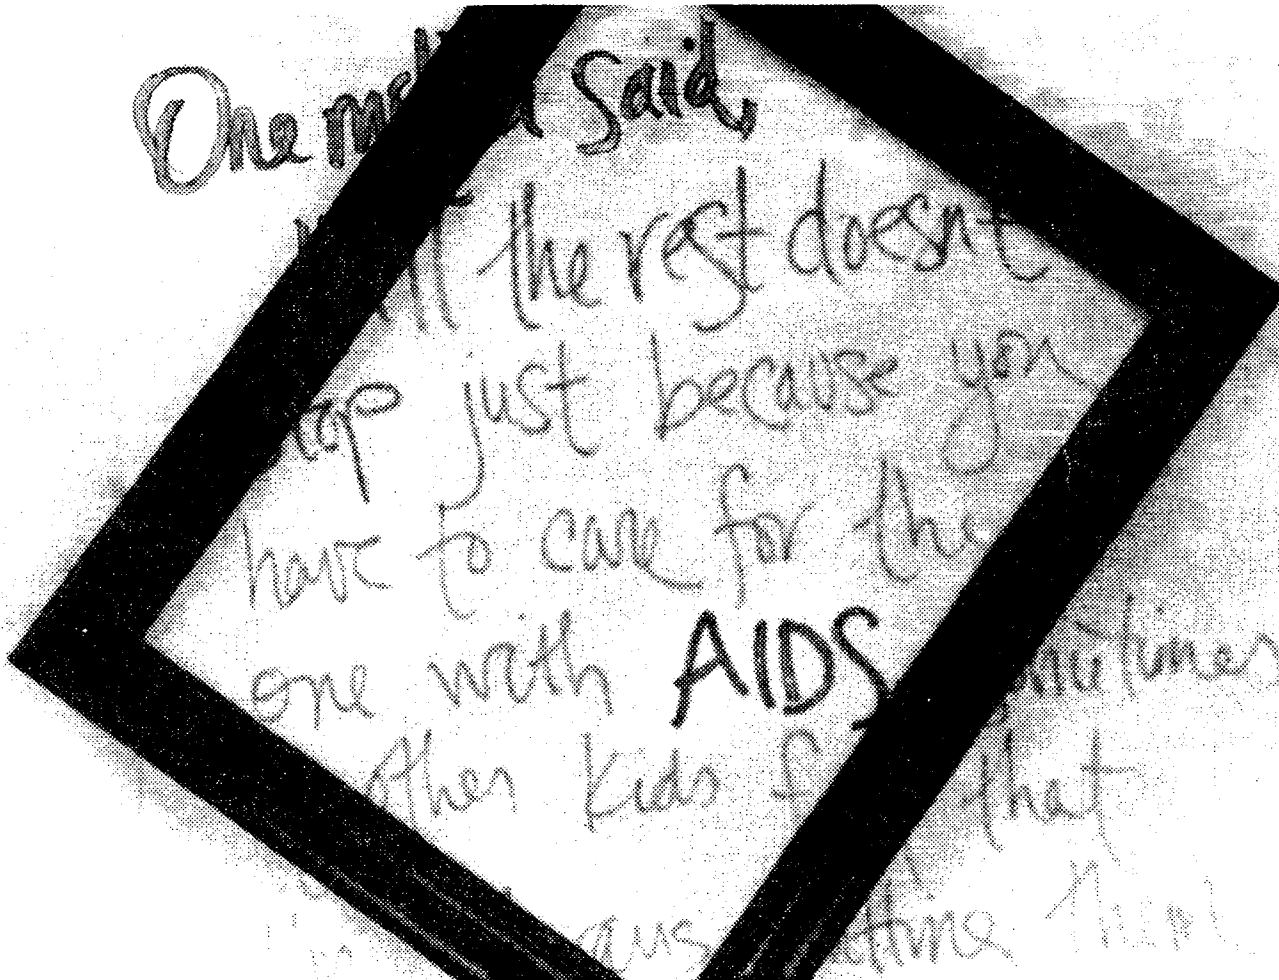 One said,
the rest doesnt
stop just because you
have to care for the
one with AIDS sometimes
other kids that
them